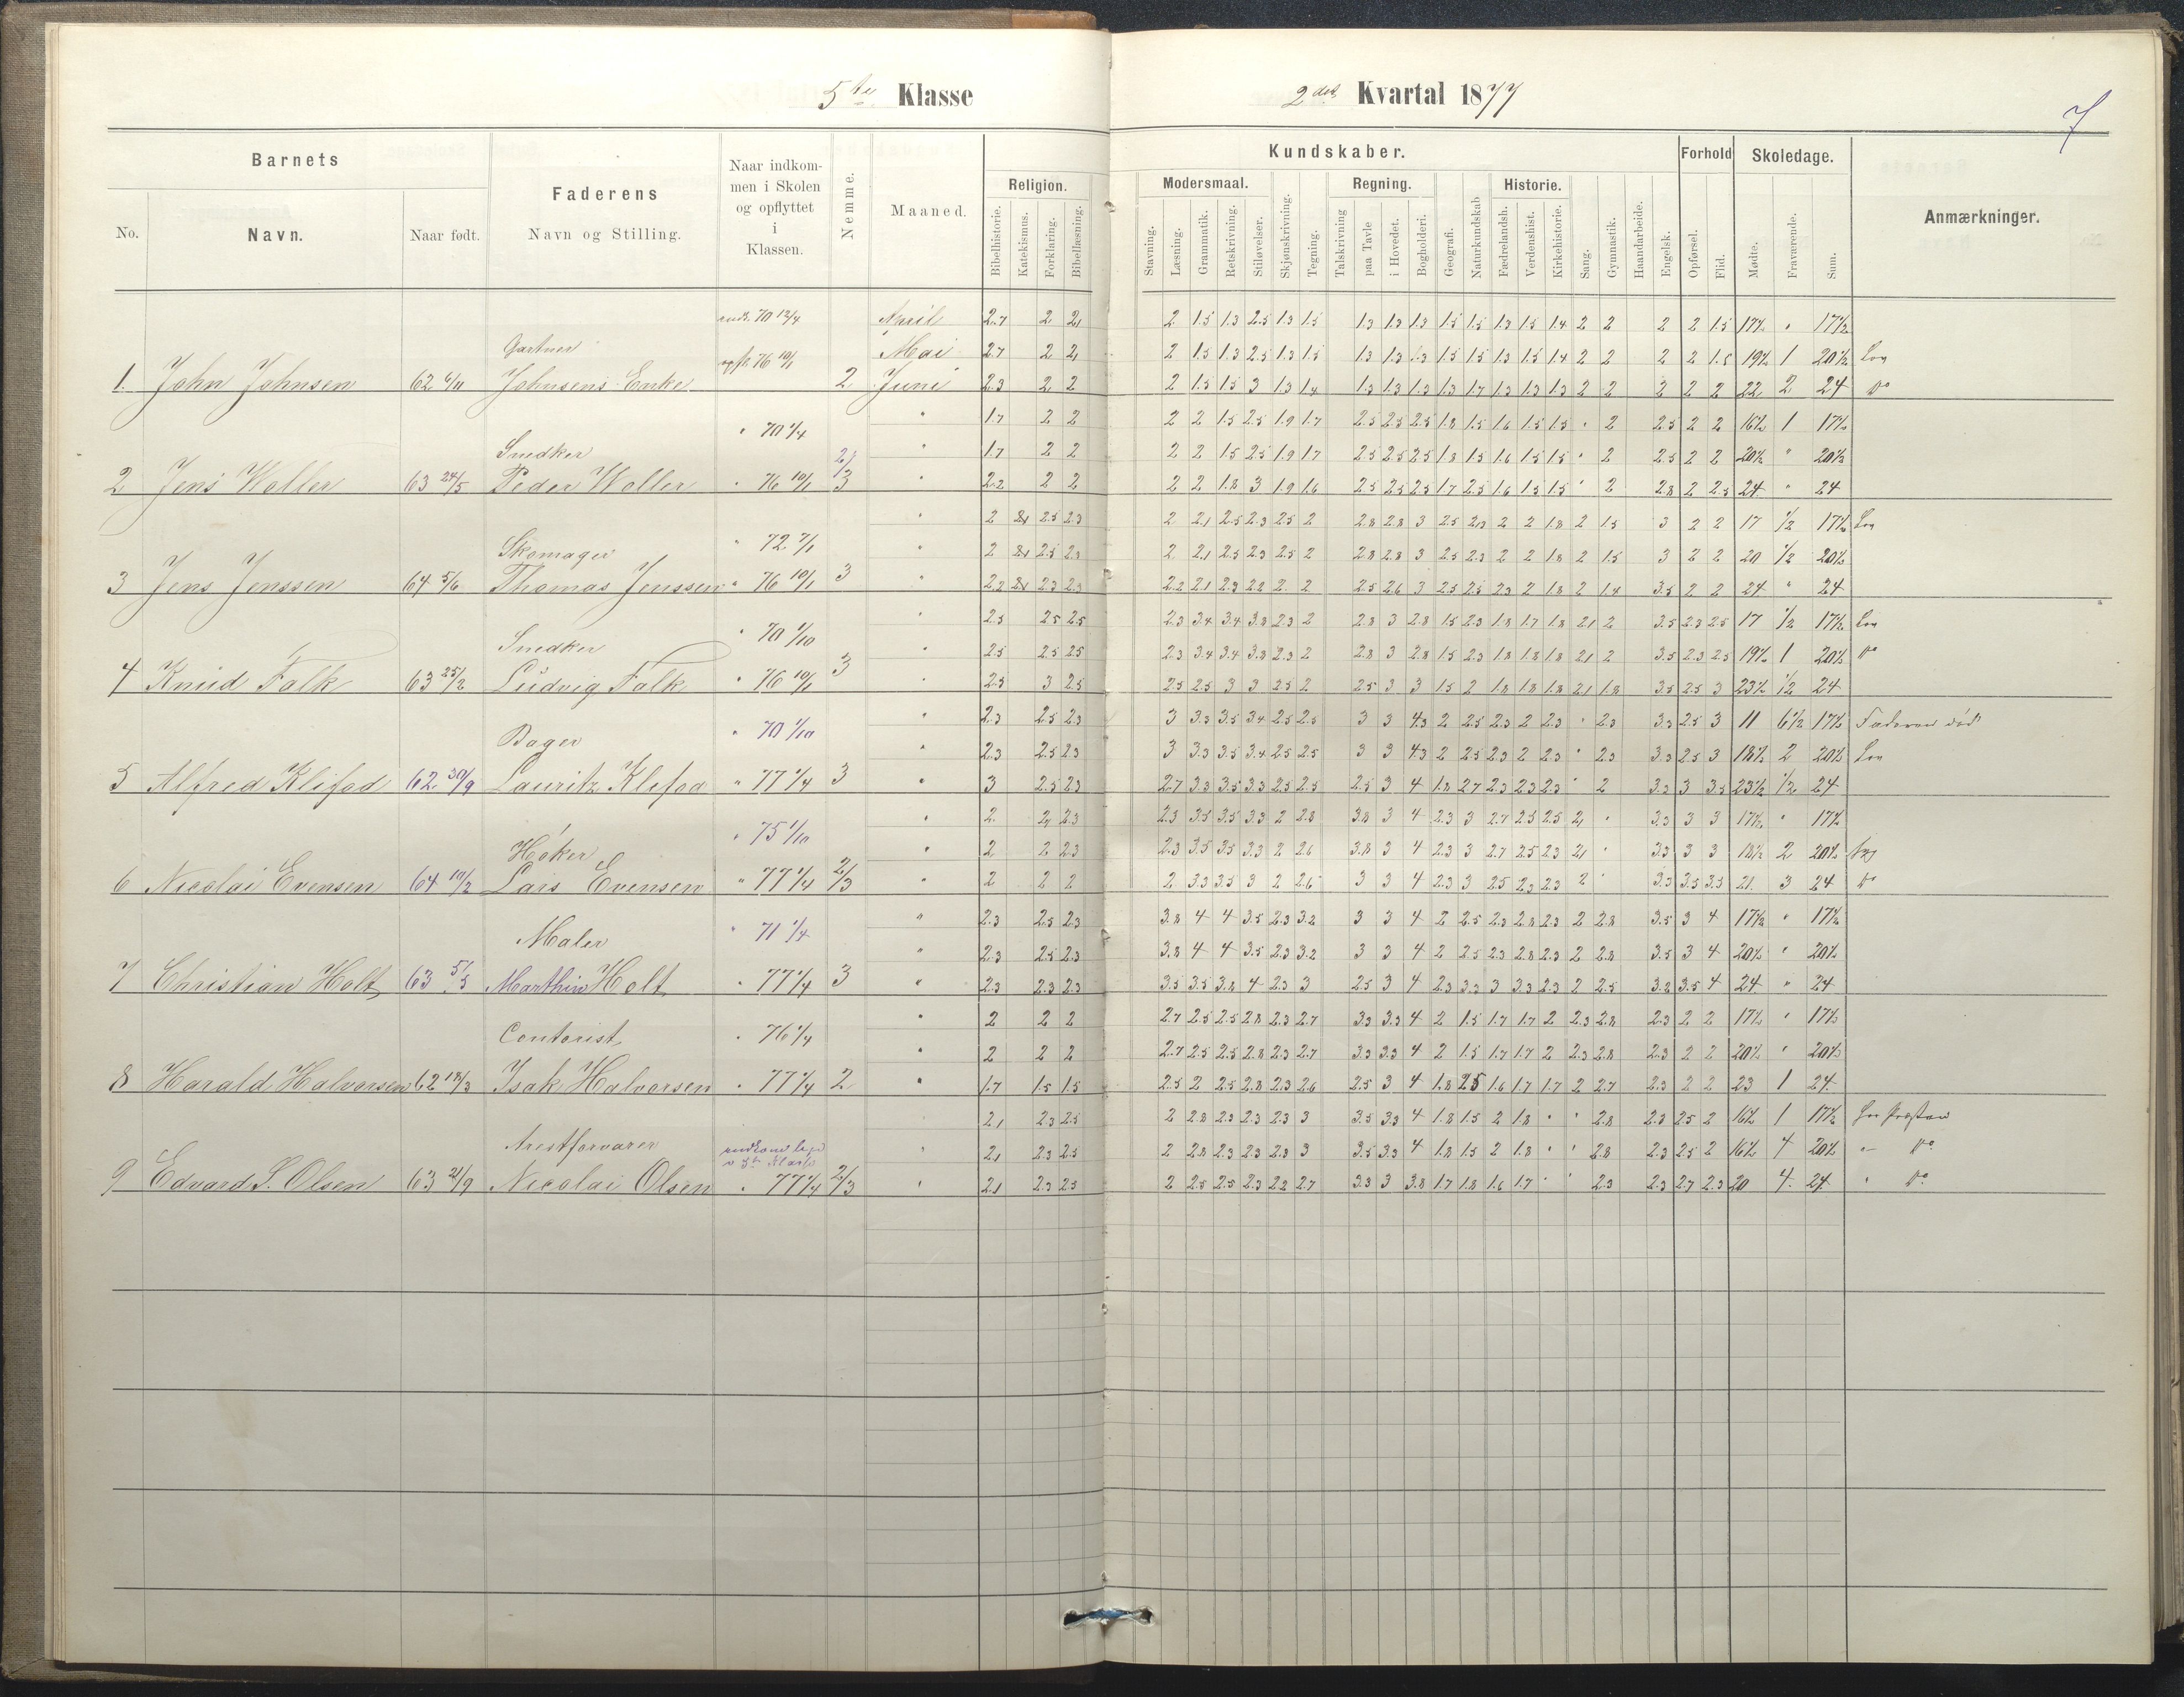 5te Klasse
2det Kvartal 1877
7
Barnets
No.
Navn.
Naar født.
Faderens
Navn og Stilling.
Naar indkom-
men i Skolen
og opflyttet
i
Klassen.
Nemme.
Maaned.
Kundskaber.
Religion.
Bibelhistorie.
Katekismus.
Forklaring.
Bibellæsning.
Modersmaal.
Stavning.
Læsning.
Grammatik.
Retskrivning.
Stiløvelser.
Skjønskrivning.
Tegning.
Regning.
Talskrivning
paa Tavle
i Hovedet.
Bogholderi.
Geografi.
Naturkundskab
Historie.
Fædrelandsh.
Verdenshist.
Kirkehistorie.
Sang.
Gymnastik.
Haandarbeide.
Engelsk.
Forhold
Opførsel.
Flid.
Skoledage.
Mødte.
Fraværende.
Sum.
Anmærkninger.
April 2.7 2 2 2 1.5 1.3 2.5 1.3 1.5 1.3 1.3 1.3 1.5 1.5 1.3 1.5 1.4 2 2 2 2 1.5 17½ " 17½
Gartner Mai 2.7 2 2 2 1.5 1.3 2.5 1.3 1.5 1.3 1.3 1.3 1.5 1.5 1.3 1.5 1.4 2 2 2 2 1.5 19½ 1 20½
1. John Johnsen 62 6/11 Johnsens Enke 2 Juni 2.3 2 2 2 1.5 1.5 3 1.3 1.4 1.3 1.3 1.3 1.3 1.7 1.3 1.3 1.3 2 2 2 2 2 22 2 24 Do
" 70 1/4 " 1.7 2 2 2 2 1.5 2.5 1.9 1.7 2.5 2.5 2.5 1.8 1.5 1.6 1.5 1.5 " 2 2.5 2 2 16½ 1 17½
Snedker " 1.7 2 2 2 2 1.5 2.5 1.9 1.7 2.5 2.5 2.5 1.8 1.5 1.6 1.5 1.5 " 2 2.5 2 2 20½ " 20½
2 Jens Woller 63 24/5 Peder Woller " 76 10/1 2/3 " 2.2 2 2 2 2 1.8 3 1.9 1.6 2.5 2.5 2.5 1.7 2.5 1.6 1.5 1.5 " 2 2.8 2 2.5 24 " 24
" 72 7/1 " 2 2.5 2.3 2 2.1 2.5 2.3 2.5 2 2.8 2.8 3 2.5 2.3 2 2 1.8 2 1.5 3 2 2 17 ½ 17½
Skomager " 2 2.5 2.3 2 2.1 2.5 2.3 2.5 2 2.8 2.8 3 2.5 2.3 2 2 1.8 2 1.5 3 2 2 20 ½ 20½
3 Jens Jenssen 64 5/6 Thomas Jenssen " 76 10/1 3 " 2.2 2.3 2.3 2.2 2.1 2.3 2.2 2 2 2.5 2.6 3 2.5 2.5 2.3 2 1.8 2 1.4 3.5 2 2 24 " 24
" 70 1/10 " 2.5 2.5 2.5 2.3 3.4 3.4 3.8 2.3 2 2.8 3 2.8 1.5 2.3 1.8 1.7 1.8 2.1 2 3.5 2.3 2.5 17 ½ 17½
Snedker " 2.5 2.5 2.5 2.3 3.4 3.4 3.8 2.3 2 2.8 3 2.8 1.5 2.3 1.8 1.8 1.8 2.1 2 3.5 2.3 2.5 19½ 1 20½ Do
4 Knud Falk 63 25/2 Ludvig Falk " 76 10/1 3 " 2.5 3 2.5 2.5 2.5 3 3 2.5 2 2.5 3 3 1.5 2 1.8 1.8 1.8 2.1 1.8 3.5 2.5 3 23½ ½ 24
" 70 1/10 " 2.3 2.5 2.3 3 3.3 3.5 3.4 2.5 2.5 3 3 4.3 2 2.5 2.3 2 2.3 " 2.3 3.3 2.5 3 11 6½ 17½ Faderen død
Bager " 2.3 2.5 2.3 3 3.3 3.5 3.4 2.5 2.5 3 3 4.3 2 2.5 2.3 2 2.3 " 2.3 3.3 2.5 3 18½ 2 20½
5 Alfred Klefod 62 30/9 Lauritz Klefod " 77 1/4 3 " 3 2.5 2.3 2.7 3.3 3.5 3.3 2.5 2.5 2.5 3 4 1.8 2.7 2.3 2.3 2.3 " 2 3.3 3 3.5 23½ ½ 24
" 75 1/10 " 2 2 2.3 2.3 3.5 3.5 3.3 2 2.8 3.8 3 4 2.3 3 2.7 2.5 2.5 2 " 3.3 3 3 17½ " 17½
Høker " 2 2 2.3 2.3 3.5 3.5 3.3 2 2.6 3.8 3 4 2.3 3 2.7 2.5 2.3 2 " 3.3 3 3 18½ 2 20½
6 Nicolai Evensen 64 10/2 Lars Evensen " 77 1/4 2/3 " 2 2 2 2 3.3 3.5 3 2 2.6 3 3 4 2.3 3 2.5 2.3 2.3 2 " 3.3 3.5 3.3 21 3 24 Do
" 71 1/4 " 2.3 2.5 2.3 3.8 4 4 3.5 2.3 3.2 3 3 4 2 2.5 2.3 2.8 2.3 2 2.8 3.5 3 4 17½ " 17½
Maler " 2.3 2.5 2.3 3.8 4 4 3.5 2.3 3.2 3 3 4 2 2.5 2.3 2.8 2.3 2 2.8 3.5 3 4 20½ " 20½
7 Christian Holt 63 5/5 Marthin Holt " 77 1/4 3 " 2.3 2.3 2.3 3.5 3.5 3.8 4 2.3 3 2.5 3 4 2.3 3.3 3 3.3 2.3 2 2.5 3.2 3.5 4 24 " 24
Contorist " 76 1/4 " 2 2 2 2.7 2.5 2.5 2.8 2.3 2.7 3.3 3.3 4 2 1.5 1.7 1.7 2 2.3 2.8 2.3 2 2 17½ " 17½
" 2 2 2 2.7 2.5 2.5 2.8 2.3 2.7 3.3 3.3 4 2 1.5 1.7 1.7 2 2.3 2.8 2.3 2 2 20½ " 20½
8 Harald Halvorsen 62 18/3 Isak Halvorsen " 77 1/4 2 " 1.7 1.5 1.5 2.5 2 2.5 2.8 2.3 2.6 2.5 3 4 1.8 2.5 1.6 1.7 1.7 2 2.7 2.3 2 2 23 1 24
2.1 2.3 2.5 2 2.8 2.3 2.3 2.3 3 3.5 3.3 4 1.8 1.5 2 1.8 " " 2.8 2.3 2.5 2 16½ 1 17½
Arestforvarer " 2.1 2.3 2.5 2 2.8 2.3 2.3 2.3 3 3.5 3.3 4 1.8 1.5 2 1.8 " " 2.8 2.3 2.5 2 16½ 4 20½ " Do
9 Edvard S. Olsen 63 21/9 Nicolai Olsen " 77 1/4 2/3 " 2.1 2.3 2.5 2 2.5 2.5 2.3 2.2 2.7 3.3 3 3.8 1.7 1.8 1.6 1.7 " " 2.3 2.3 2.7 2.3 20 4 24 " Do